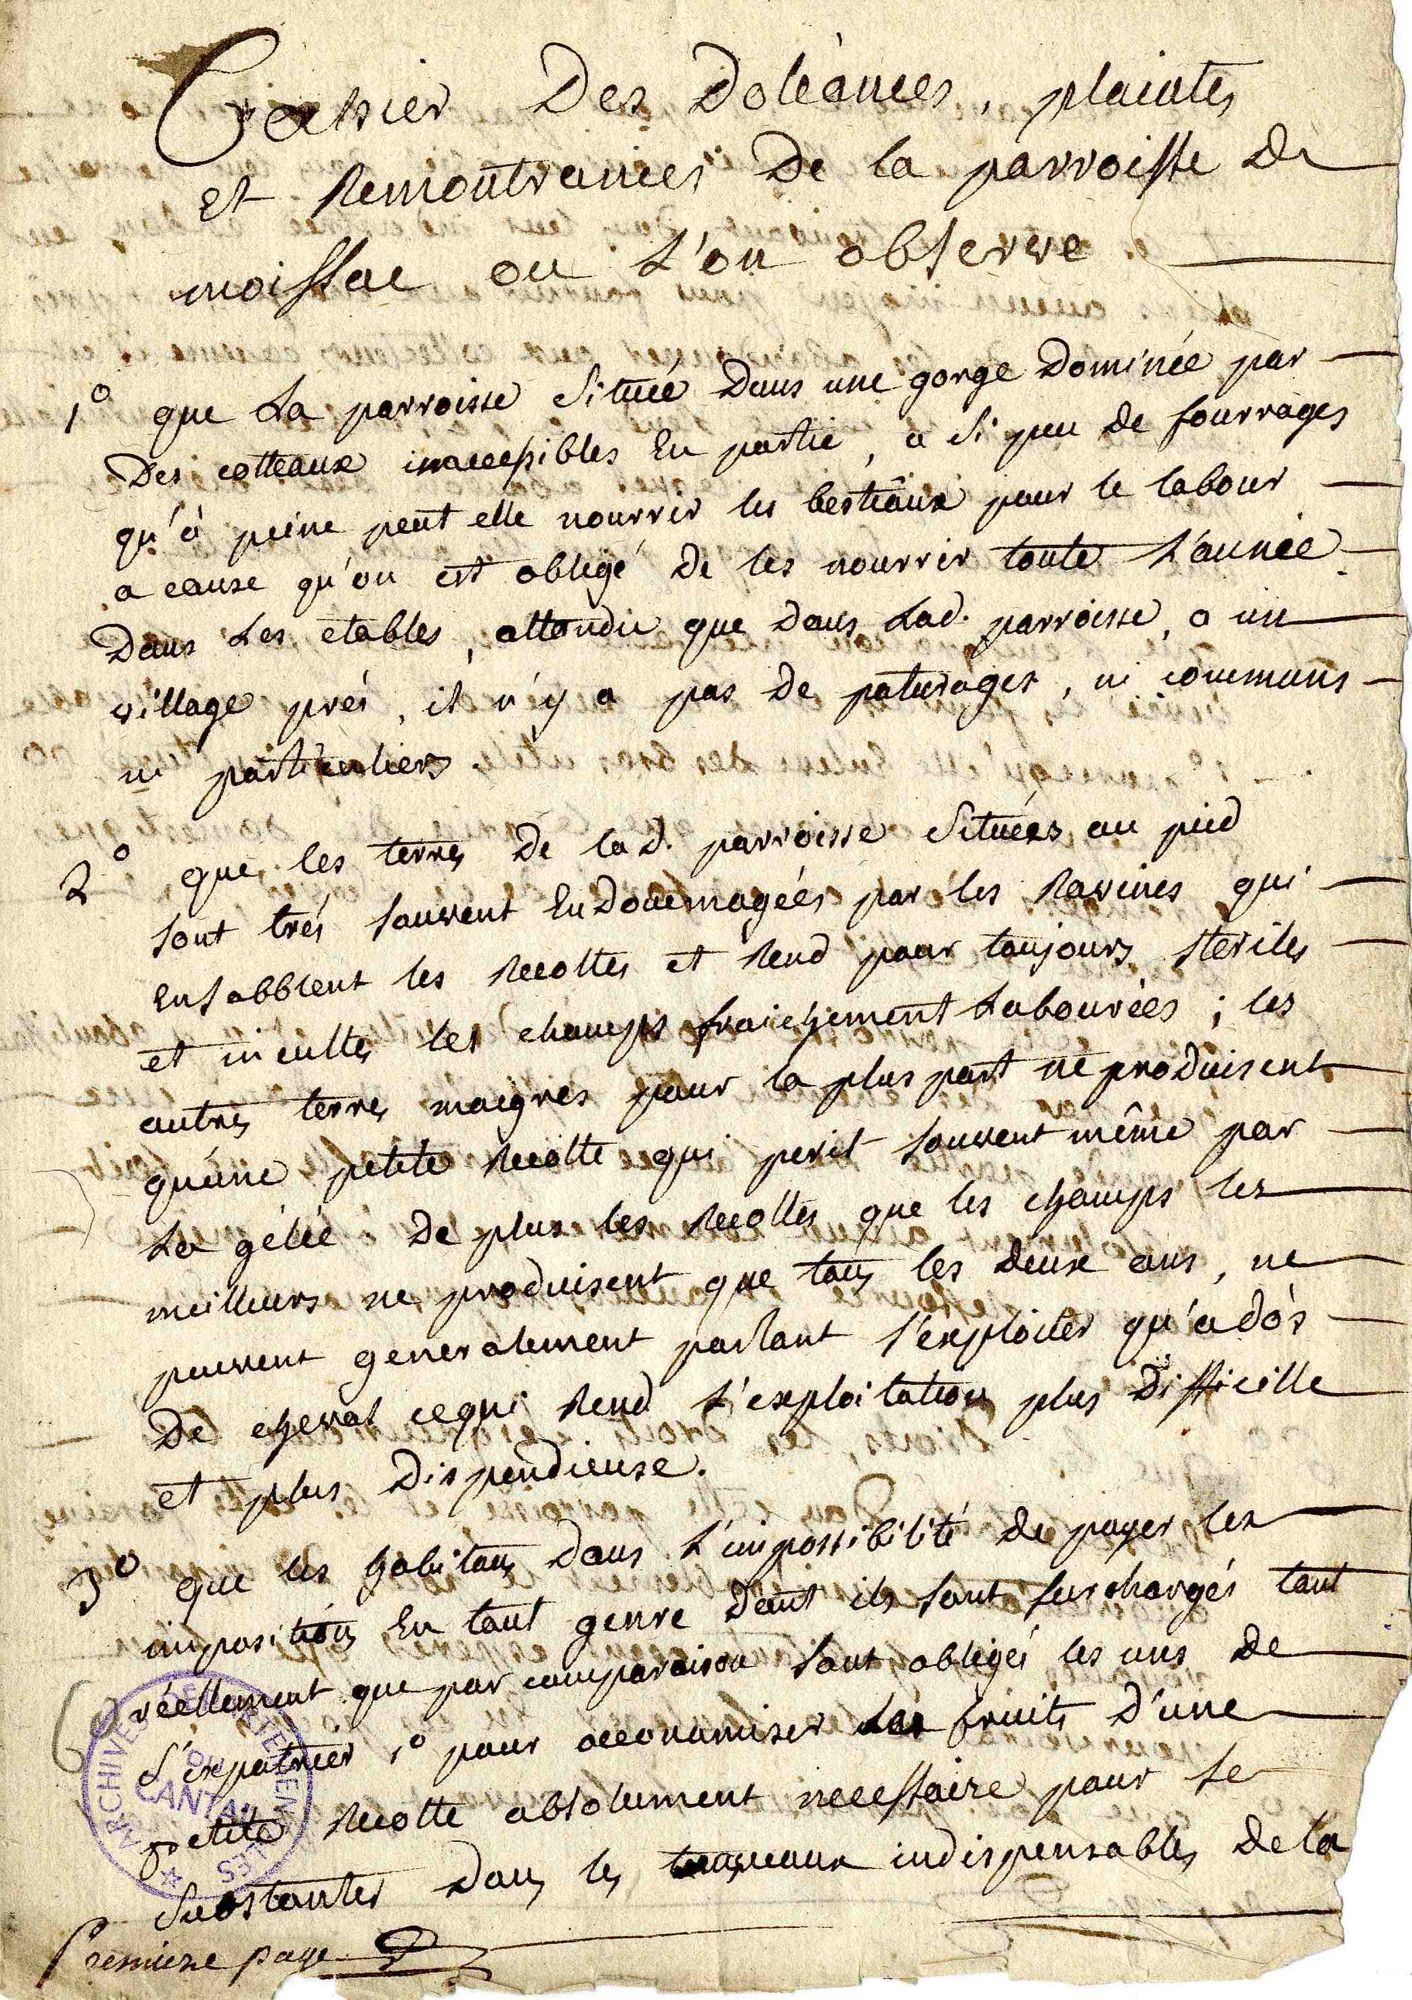 Cahier Des Doléances, plaintes
et Remontrances De la parroisse De
moissac ou L'on observe
1° que La parroisse Située Dans une gorge Dominée par
Des cotteaux inaccessibles En partie, a Si peu de fourrages
qu'à peine peut elle nourrir les bestiaux pour le labour
a cause qu'on est obligé De les nourrir toute L'année
Dans Les étables, attendu que dans Lad. parroisse, a un
village prés, il n'y a pas De paturages, ni communs
ni particuliers.
2° que les terres De lad. parroisse Situées au pied
sont trés souvent Endommagées par les Ravines qui
Ensabblent les Recoltes et Rend pour toujours steriles
et incultes les champs fraichement Labourées ; les
autres terres maigres pour la plus part ne produisent
qu'une petite Recolte qui perit souvent même par
La gélée. De plus les Recoltes que les champs les
meilleurs ne produisent que tous les deux ans, ne
peuvent generalement parlant s'exploiter qu'a dos
De cheval ce qui Rend L'exploitation plus Difficille
et plus Dispendieuse.
3° que les habitans Dans L'impossibilité De payer les
impositions En tout genre dont ils sont surchargés tant
réellement que par comparaison sont obligés les uns De
S'expatrier 1° pour oeconomiser les fruits D'une
petite Recolte absolument necessaire pour se
Substanter Dans les travaux indispensables De la
Premiere page
ARCHIVES DEPARTEMENTALES
DU
CANTAL